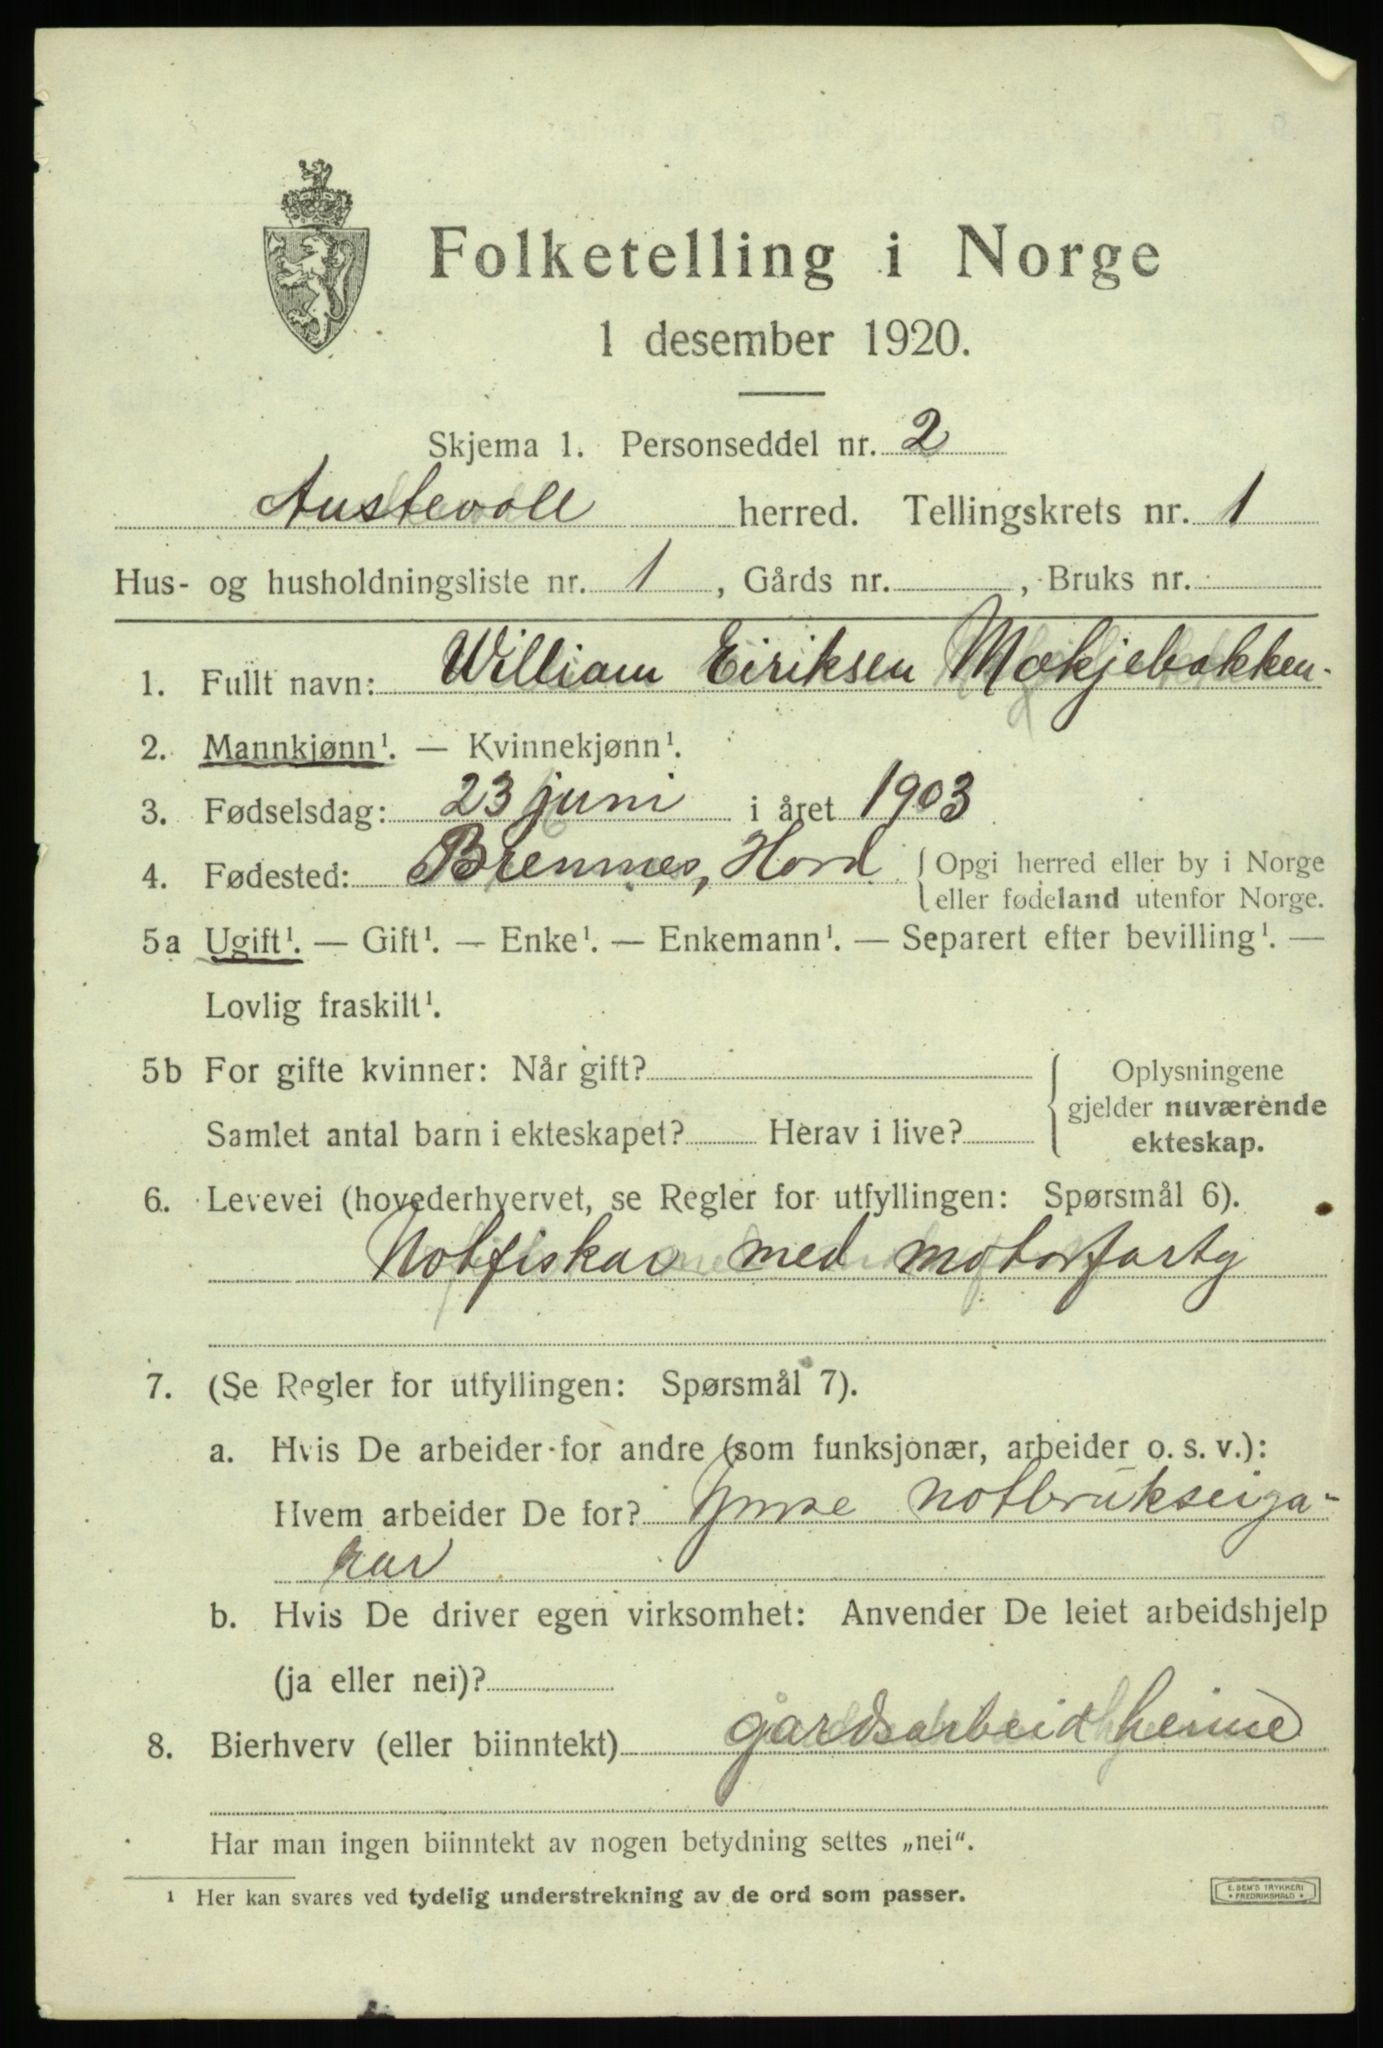 Folketelling i Norge
1 desember 1920.
Skjema 1. Personseddel nr. 2
Austevoll herred. Tellingskrets nr. 1
Hus- og husholdningsliste nr. 1, Gårds nr. , Bruks nr.
1. Fullt navn: William Eiriksen Møkjebakken.
2. Mannkjønn¹. — Kvinnekjønn¹.
3. Fødselsdag: 23 juni i året 1903
4. Fødested: Bremnes, Hord {Opgi herred eller by i Norge
eller fødeland utenfor Norge.
5a Ugift¹. — Gift¹. — Enke¹. — Enkemann¹. — Separert efter bevilling¹. —
Lovlig fraskilt¹.
5b For gifte kvinner: Når gift?
Samlet antal barn i ekteskapet? Herav i live?
{Oplysningene
gjelder nuværende
ekteskap.
6. Levevei (hovederhvervet, se Regler for utfyllingen: Spørsmål 6).
Notfiskar med motorfarty
7. (Se Regler for utfyllingen: Spørsmål 7).
a. Hvis De arbeider for andre (som funksjonær, arbeider o. s. v.):
Hvem arbeider De for? Ymse notbrukseiga-
rar
b. Hvis De driver egen virksomhet: Anvender De leiet arbeidshjelp
(ja eller nei)?
8. Bierhverv (eller biinntekt) gårdsarbeid heime
Har man ingen biinntekt av nogen betydning settes „nei“.
¹ Her kan svares ved tydelig understrekning av de ord som passer.
E. SEM'S TRYKKERI
* FREDRIKSHALD *